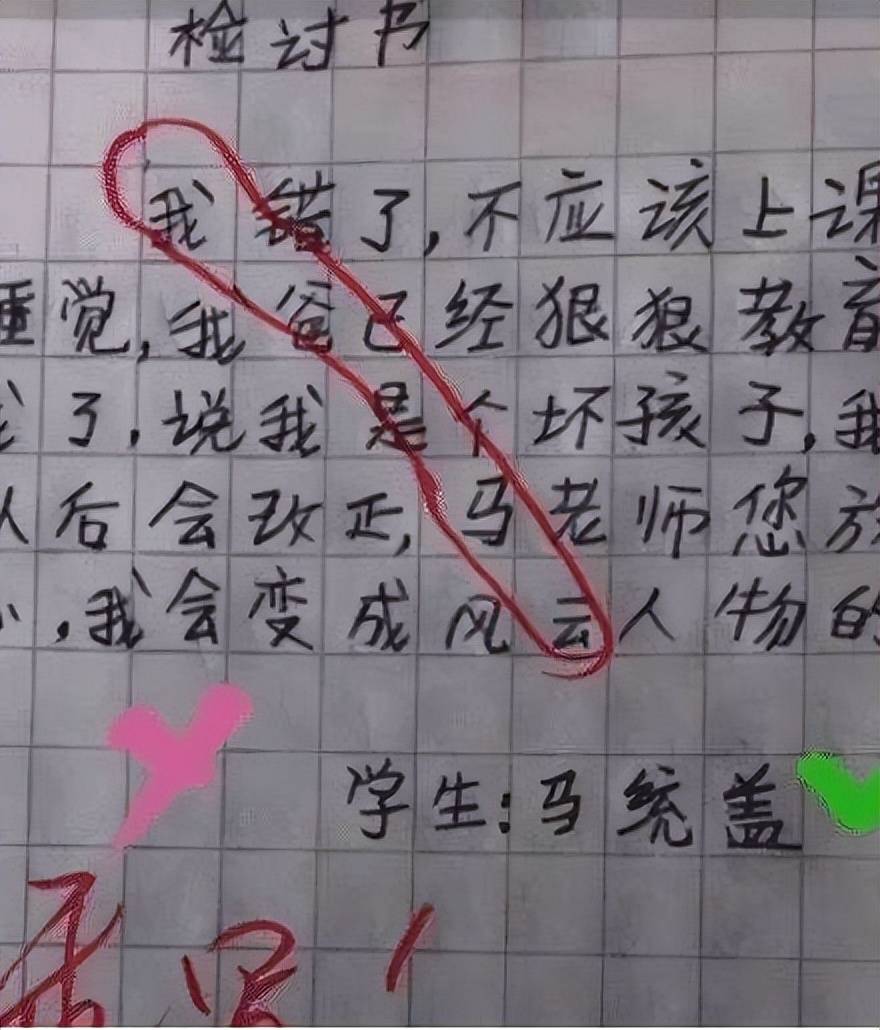 检讨书
我错了,不应该上课
睡觉,我爸已经狠狠教育
我了,说我是个坏孩子,我
以后会改正,马老师您放
心,我会变成风云人物的
学生:马统盖